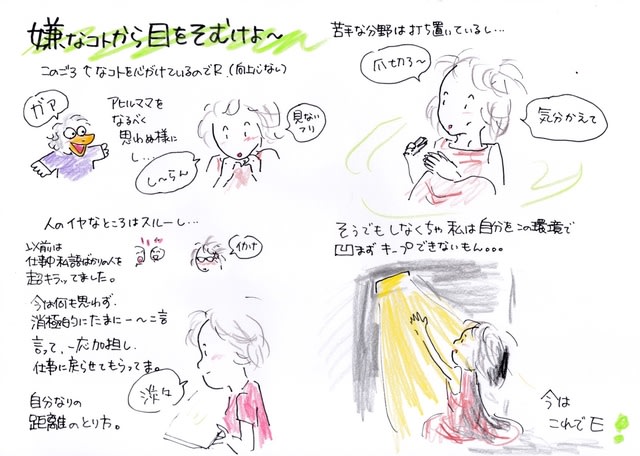 嫌なコトから目をそむけよ〜
このごろ↑なコトを心がけているのでR(向上心なし)
ガァ
アヒルママを
なるべく
思わぬ様に
し…
し〜らん
見ない
フリ
苦手な分野は打ち置いているし…
爪切ろ〜
気分かえて
人のイヤなところはスルーし…
以前は
仕事中私語ばかりの人を
超キラッてました。
今は何も思わず、
消極的にたまに一〜二言
言って、一応加担し、
仕事に戻らせてもらってま。
自分なりの
距離のとり方。
淡々
そうでもしなくちゃ私は自分をこの環境で
凹まずキープできないもん。。。
今は
これでE!